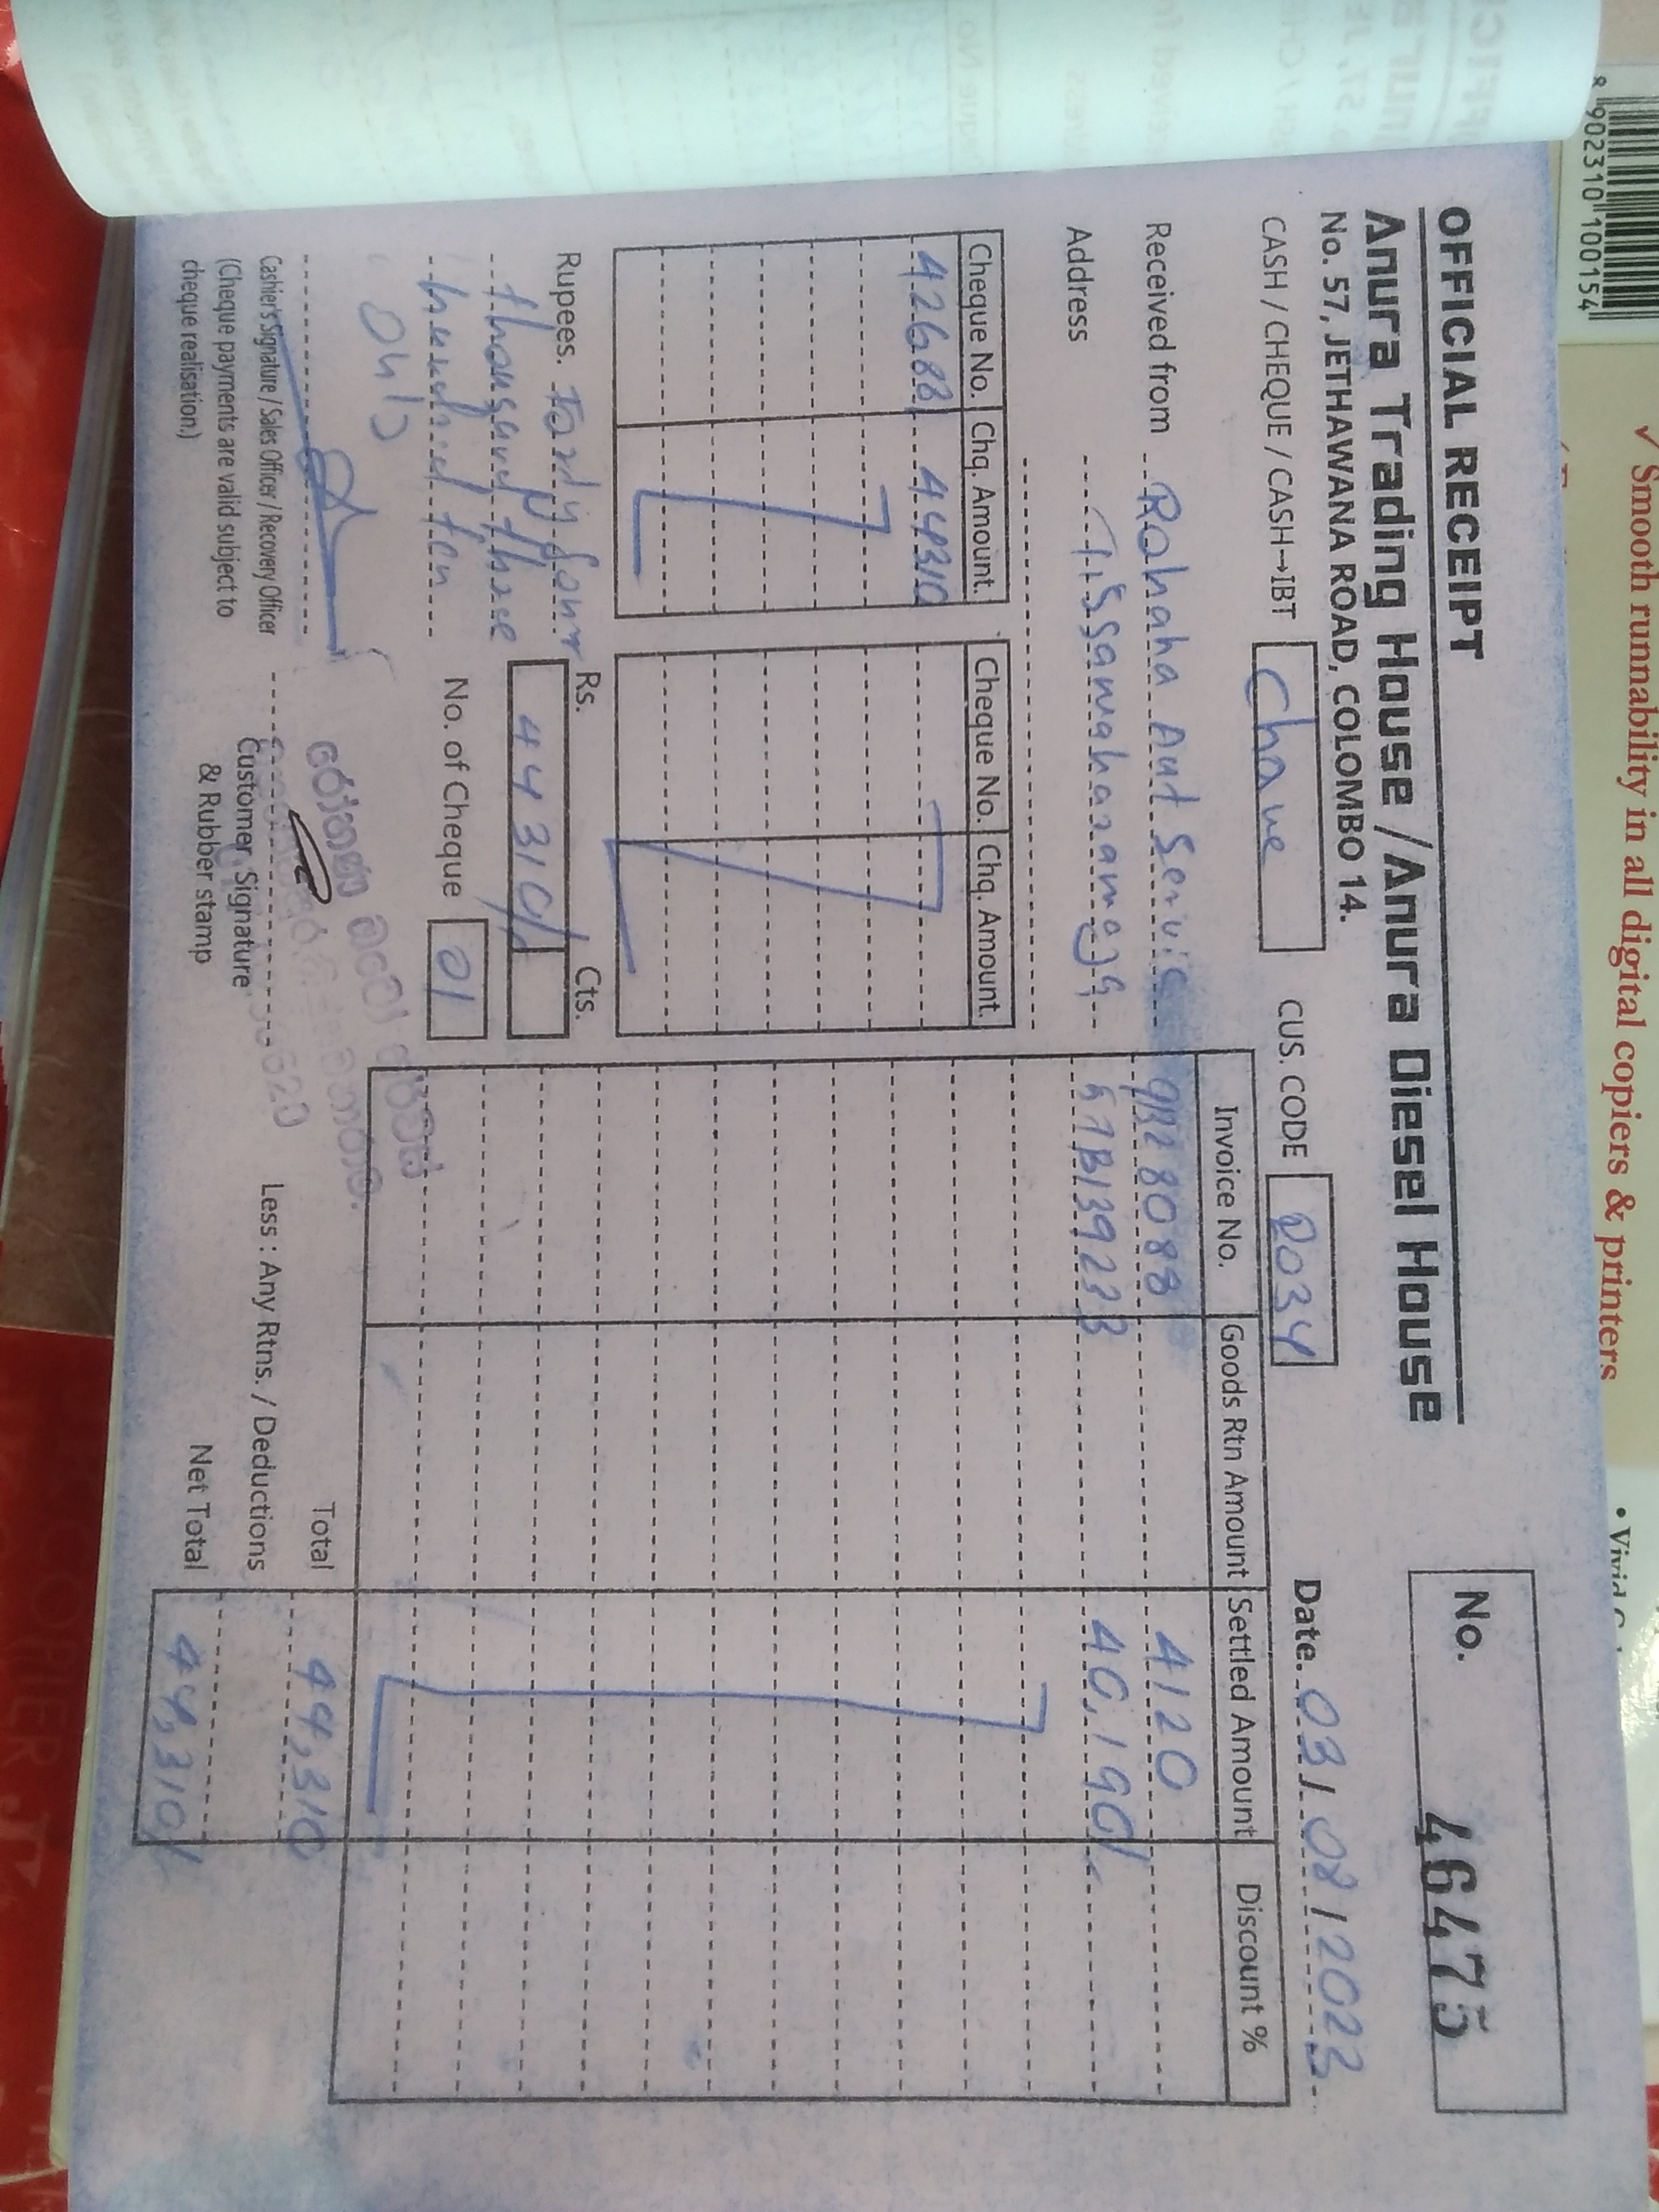 8 902310 100154
✓ Smooth runnability in all digital copiers & printers
OFFICIAL RECEIPT
Anura Trading House / Anura Diesel House
No. 57, JETHAWANA ROAD, COLOMBO 14.
No. 46475
CASH / CHEQUE / CASH→IBT
CUS. CODE 2034
Date. 03/08/2023
Received from Rohaha Aut Servic
Address Tissamaharamaya
Cheque No. Chq. Amount. Cheque No. Chq. Amount.
426881 44310
Invoice No. Goods Rtn Amount Settled Amount Discount %
80088 4120
B139233 40,190/-
Rupees. Forty four
thousand three
hundred ten
only
Rs. Cts.
44310/
No. of Cheque 01
Cashier's Signature / Sales Officer / Recovery Officer
(Cheque payments are valid subject to
cheque realisation.)
Customer Signature
& Rubber stamp
Total 44,310
Less : Any Rtns. / Deductions
Net Total 44,310/